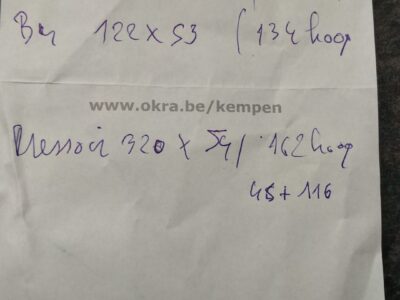 Bu 122 x 53 / 134 hoog
www.okra.be/kempen
Dressoir 320 x 54 / 162 hoog
45 + 116